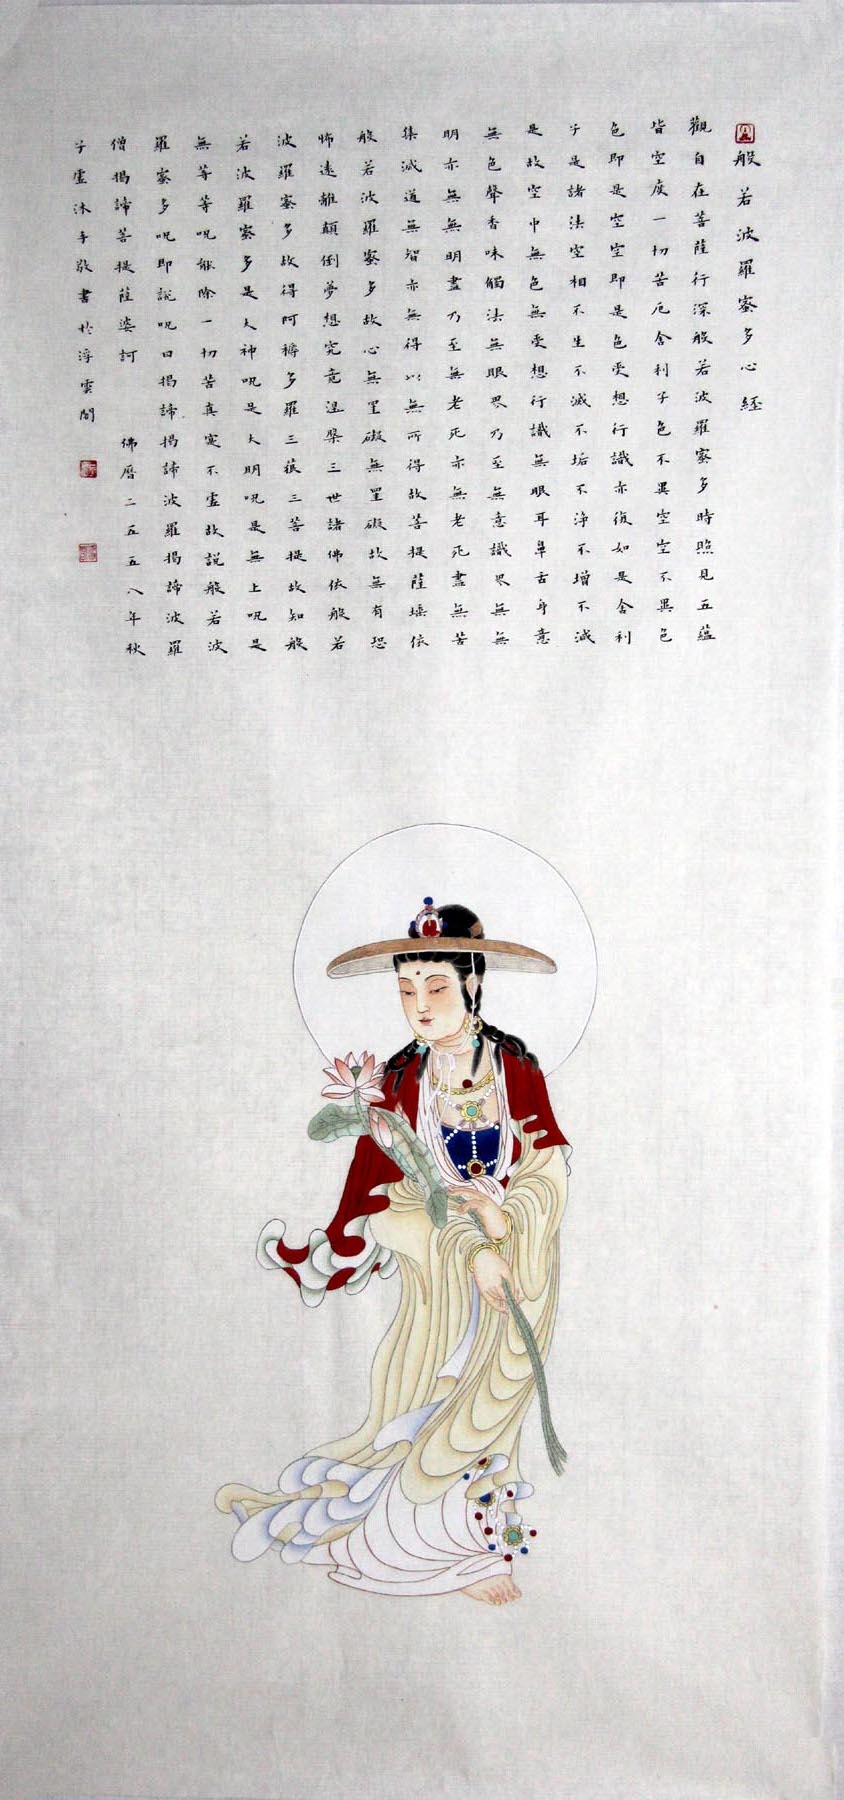 般若波羅蜜多心經
觀自在菩薩行深般若波羅蜜多時照見五蘊
皆空度一切苦厄舍利子色不異空空不異色
色即是空空即是色受想行識亦復如是舍利
子是諸法空相不生不滅不垢不淨不增不減
是故空中無色無受想行識無眼耳鼻舌身意
無色聲香味觸法無眼界乃至無意識界無無
明亦無無明盡乃至無老死亦無老死盡無苦
集滅道無智亦無得以無所得故菩提薩埵依
般若波羅蜜多故心無罣礙無罣礙故無有恐
怖遠離顛倒夢想究竟涅槃三世諸佛依般若
波羅蜜多故得阿耨多羅三藐三菩提故知般
若波羅蜜多是大神呪是大明呪是無上呪是
無等等呪能除一切苦真實不虛故說般若波
羅蜜多呪即說呪曰揭諦揭諦波羅揭諦波羅
僧揭諦菩提薩婆訶 佛曆二五五八年秋
子虛沐手敬書於淳雲閣